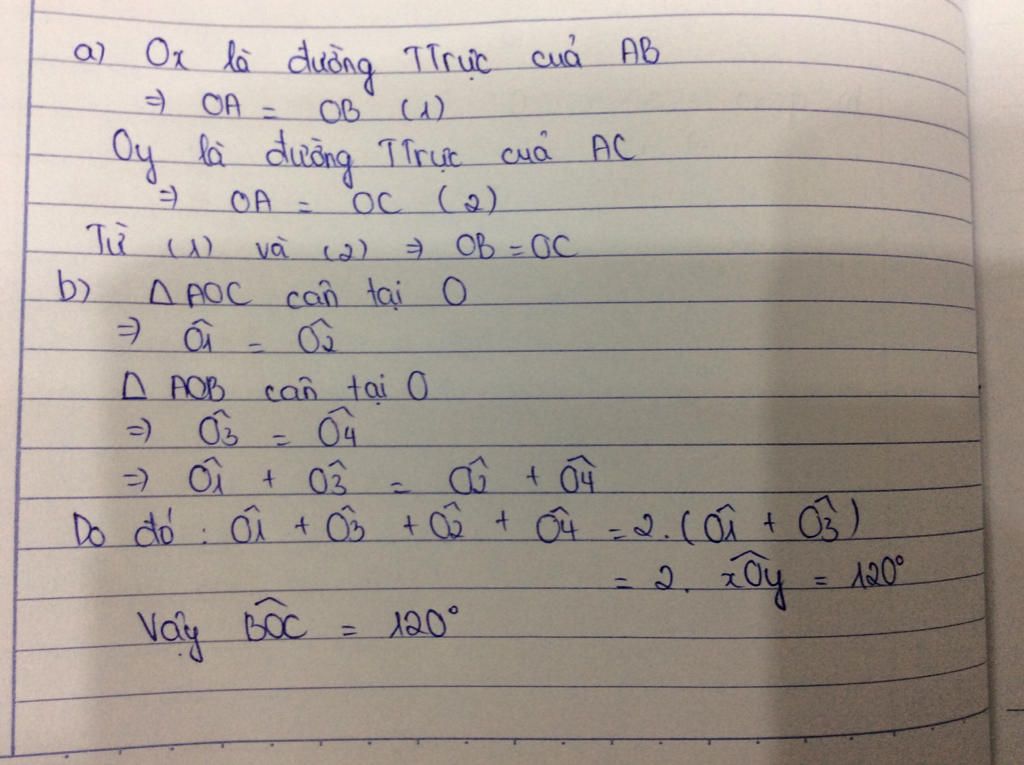 a) Ox là đường TTrực cuả AB
⇒ OA = OB (1)
Oy là đường TTrực cuả AC
⇒ OA = OC (2)
Từ (1) và (2) ⇒ OB = OC
b) △ AOC cân tại O
⇒ Ô1 = Ô2
△ AOB cân tại O
⇒ Ô3 = Ô4
⇒ Ô1 + Ô3 = Ô2 + Ô4
Do đó : Ô1 + Ô3 + Ô2 + Ô4 = 2. (Ô1 + Ô3)
= 2. xÔy = 120°
Vậy BÔC = 120°